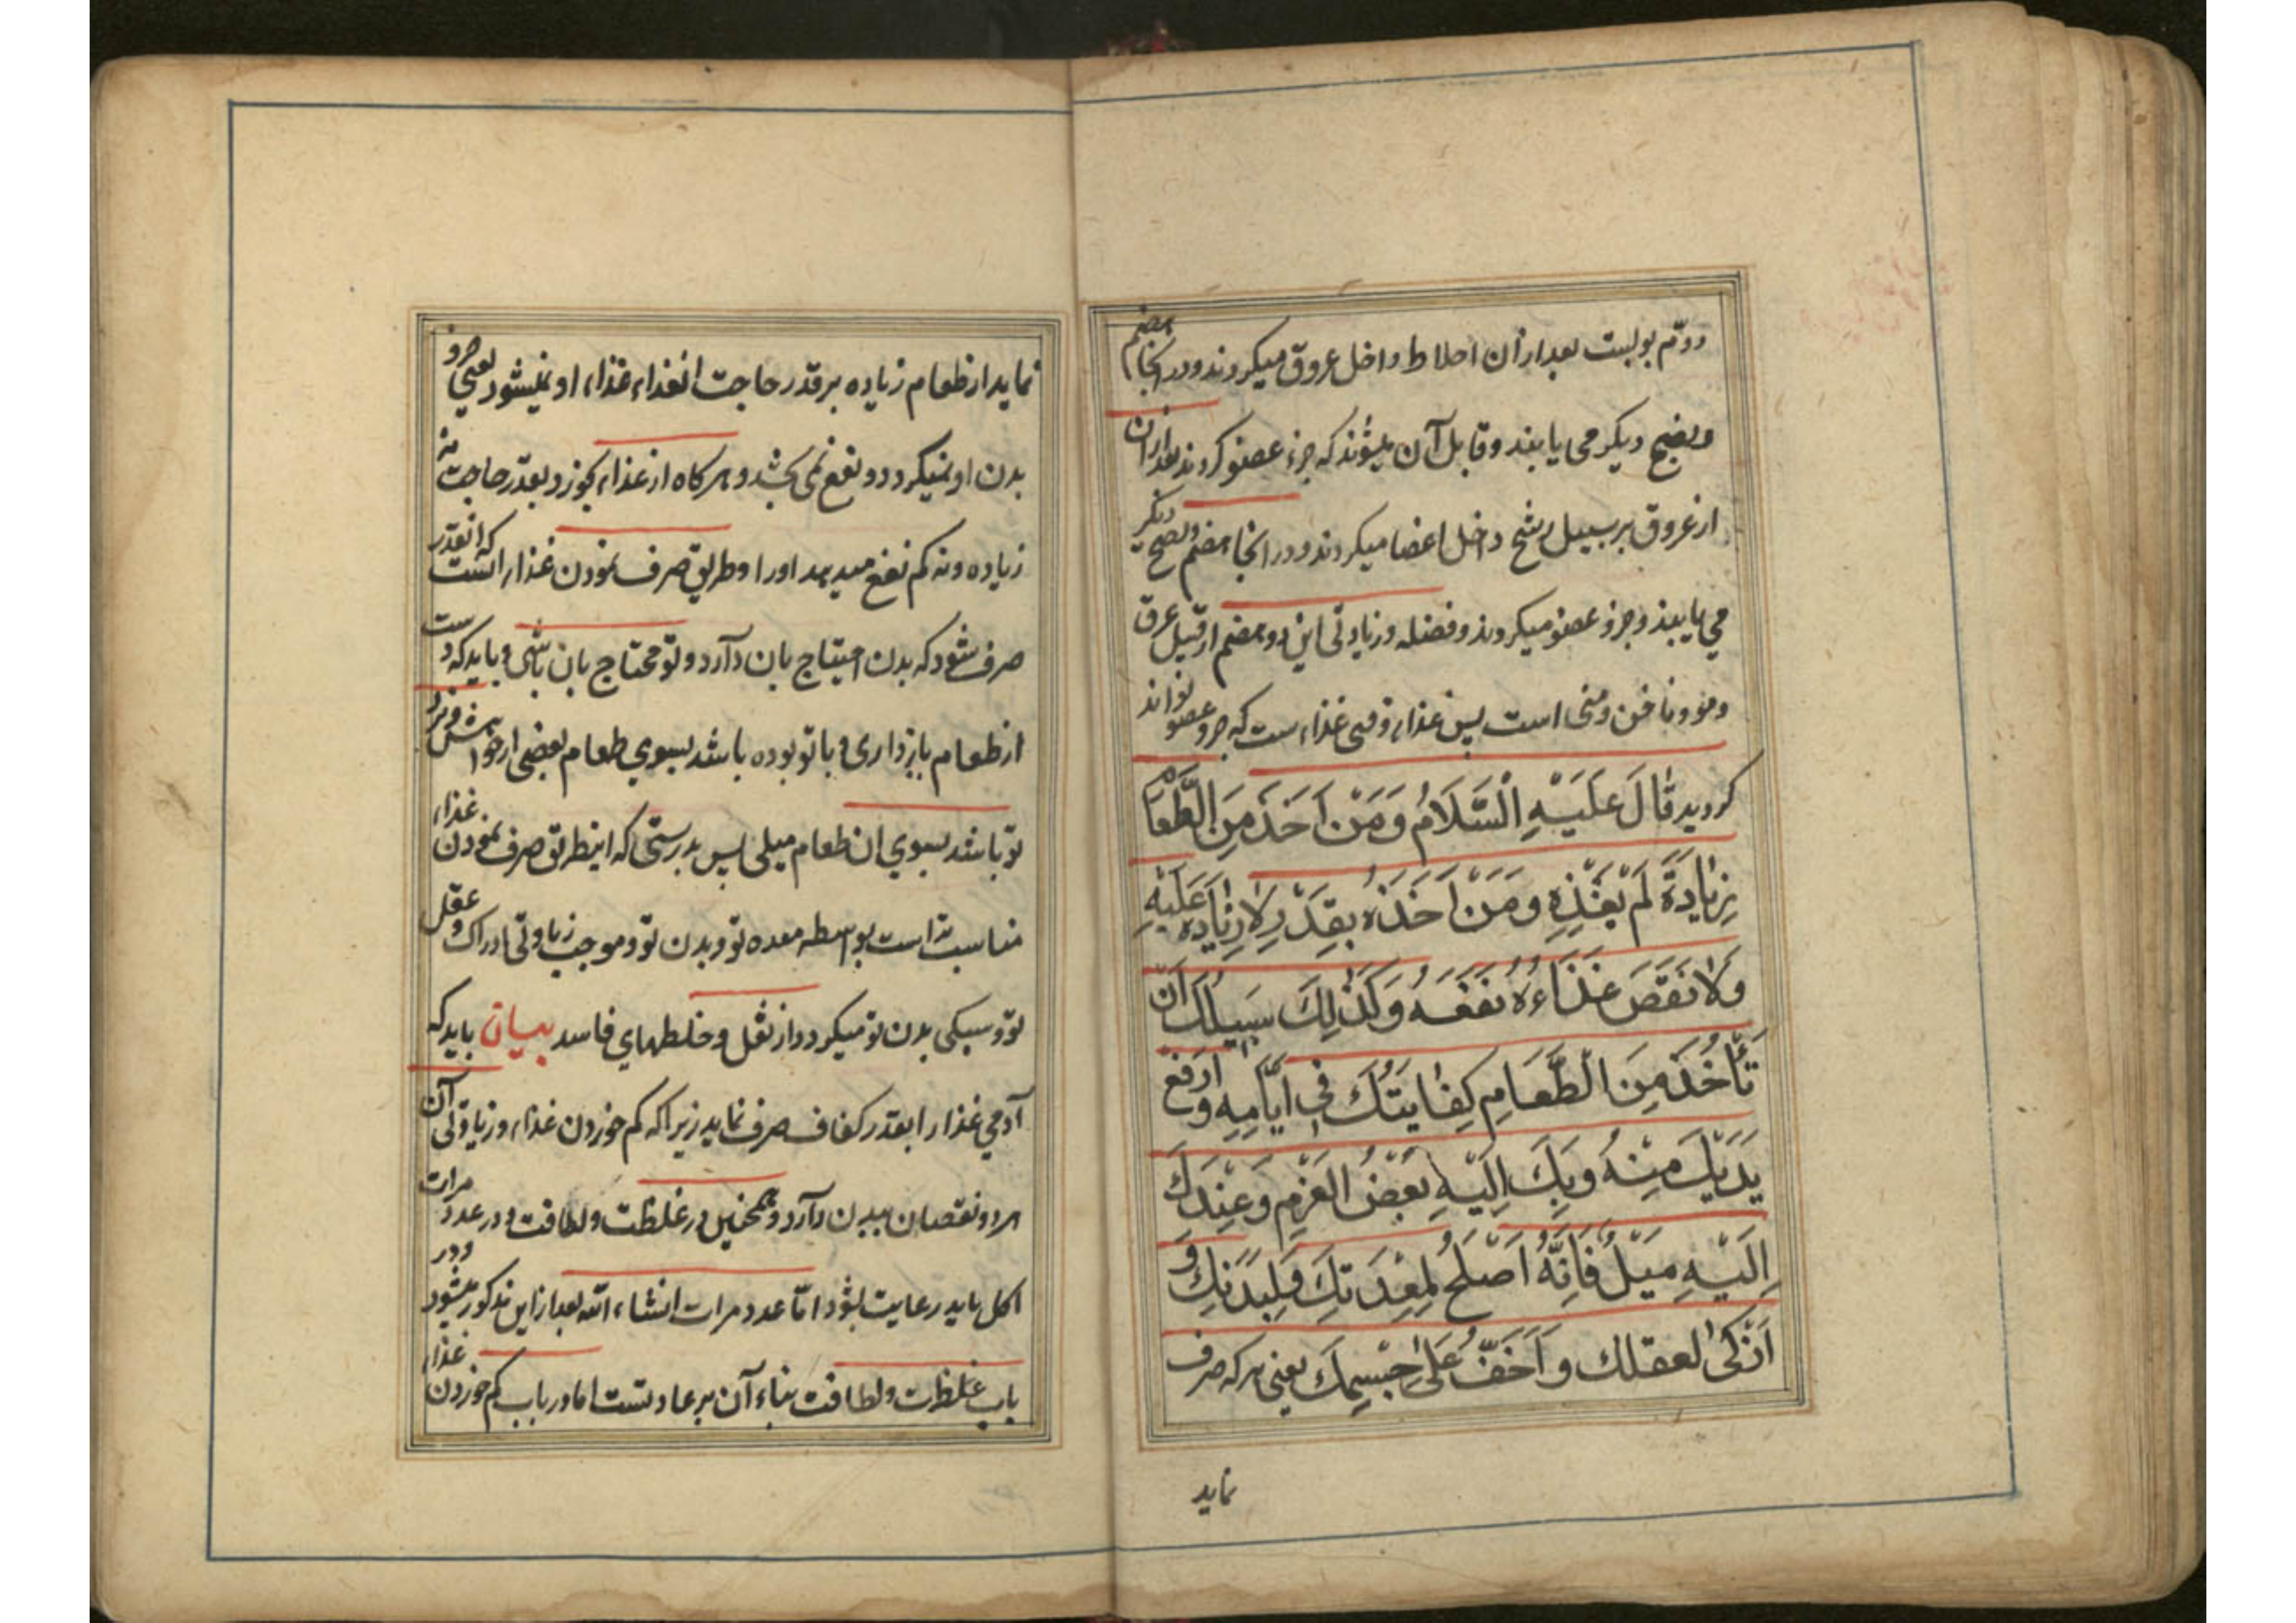 دوّم بولست بعد ازان اخلاط داخل عروق میکردند و در انجا هضم
و نضج دیکر می یابند و قابل آن میشوند که جزء عضو کردند بعد ازان
از عروق بر سبیل رشح داخل اعضا میکردند و در انجا هضم و نضج دیکر
می یابند و جزو عضو میکردند و فضله و زیادتی این دو هضم از قبیل عرق
و مو و ناخن و منی است پس غذاء وقتی غذاء ست که جزو عضو تواند
کردید قَالَ عَلَيْهِ الْسَّلَامُ وَمَنْ اَخَذَ مِنَ الطَّعَامِ
زِيَادَةً لَمْ يَغْذِهِ وَمَنْ اَخَذَهُ بِقَدْرٍ لَا زِيَادَةَ عَلَيْهِ
وَلَا نَقْصَ غَذَاءُهُ نَفَعَهُ وَكَذٰلِكَ سَبِيلُكَ اَنْ
تَأْخُذَ مِنَ الطَّعَامِ كِفَايَتُكَ فِي اَيَّامِهِ وَ ارْفَعْ
يَدَيْكَ مِنْهُ وَبِكَ اِلَيْهِ بَعْضُ الْقَرْمِ وَعِنْدَكَ
اِلَيْهِ مَيْلٌ فَاِنَّهُ اَصْلَحُ لِمِعْدَتِكَ وَلِبَدَنِكَ وَ
اَزْكىٰ لعقلك وَاَخَفُّ عَلىٰ جِسْمِكَ یعنی هر که صرف
نماید
نماید از طعام زیاده بر قدر حاجت انغذاء غذاء او نمیشود یعنی جزو
بدن او نمیکردد و نفع نمی بخشد و هر کاه از غذاء بخورد بقدر حاجت نه
زیاده و نه کم نفع میدهد او را و طریق صرف نمودن غذاء انست که انقدر
صرف شود که بدن احتیاج بان دارد و تو محتاج بان باشی و باید که دست
از طعام بازداری و با تو بوده باشد بسوی طعام بعضی از خواهش و نزد
تو باشد بسوی ان طعام میلی پس بدرستی که اینطریق صرف نمودن غذاء
مناسبتر است بواسطه معده تو و بدن تو و موجب زیادتی ادراک و عقل
تو و سبکی بدن تو میکردد از ثقل و خلطهای فاسد بیان باید که
آدمی غذا را بقدر کفاف صرف نماید زیرا که کم خوردن غذاء و زیادتی آن
هر دو نقصان ببدن دارد و همچنین در غلظت و لطافت و در عدد مرات
اکل باید رعایت بشود امّا عدد مرات انشاء الله بعد از این مذکور میشود و در
باب غلظت و لطافت بناء آن بر عادتست اما در باب کم خوردن غذاء